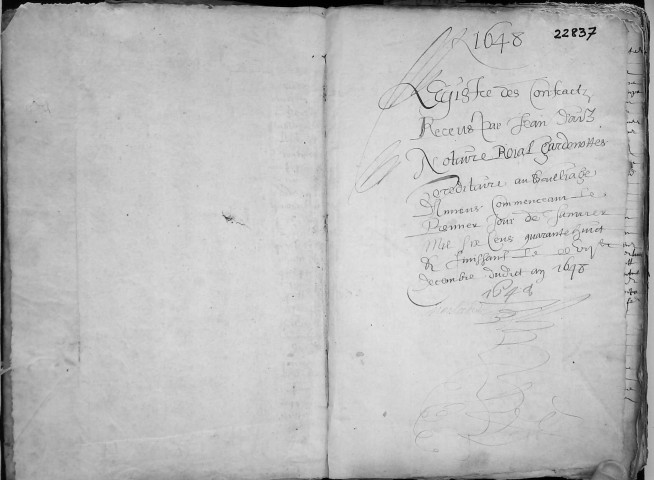 1648
22837
Registre des Contractz
Receus par Jean
Notaire Roial Gardenottes
hereditaire au Bailliage
d'Amiens Commenceant Le
Premier Jour de Januier
Mil Six Cens quarante huict
& finissant Le
decembre dudict an 1648
1648